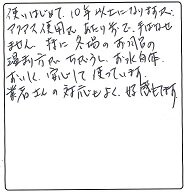 使いはじめて、10年以上になりますが、
アクアス使用水、あたり分で、手ばなせ
ません。特に冬場のお風呂の
温まり方が ちがうし、お水自体
おいしく、安心して使っています。
業者さんの対応もよく、好感もてます。